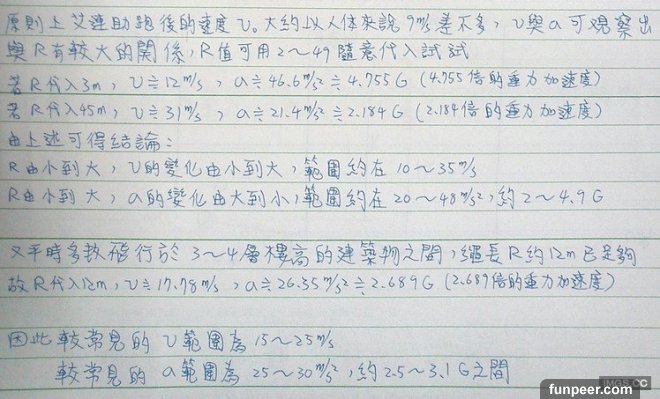 原則上艾連助跑後的速度V。大約以人体來說 9m/s 差不多，v與a可觀察出
與R有較大的關係，R值可用2～49隨意代入試試
若R代入3m，v≒12m/s，a≒46.6m/s²≒4.755G (4.755倍的重力加速度)
若R代入45m，v≒31m/s，a≒21.4m/s²≒2.184G (2.184倍的重力加速度)
由上述可得結論：
R由小到大，v的變化由小到大，範圍約在 10～35m/s
R由小到大，a的變化由大到小，範圍約在 20～48m/s²，約2～4.9G
又平時多執飛行於 3～4層樓高的建築物之間，繩長R約12m已足夠
故R代入12m，v≒17.78m/s，a≒26.35m/s²≒2.689G (2.689倍的重力加速度)
因此較常見的 v範圍為 15～25m/s
較常見的 a範圍為 25～30m/s²，約2.5～3.1G之間
IMGS.CC
funpeer.com